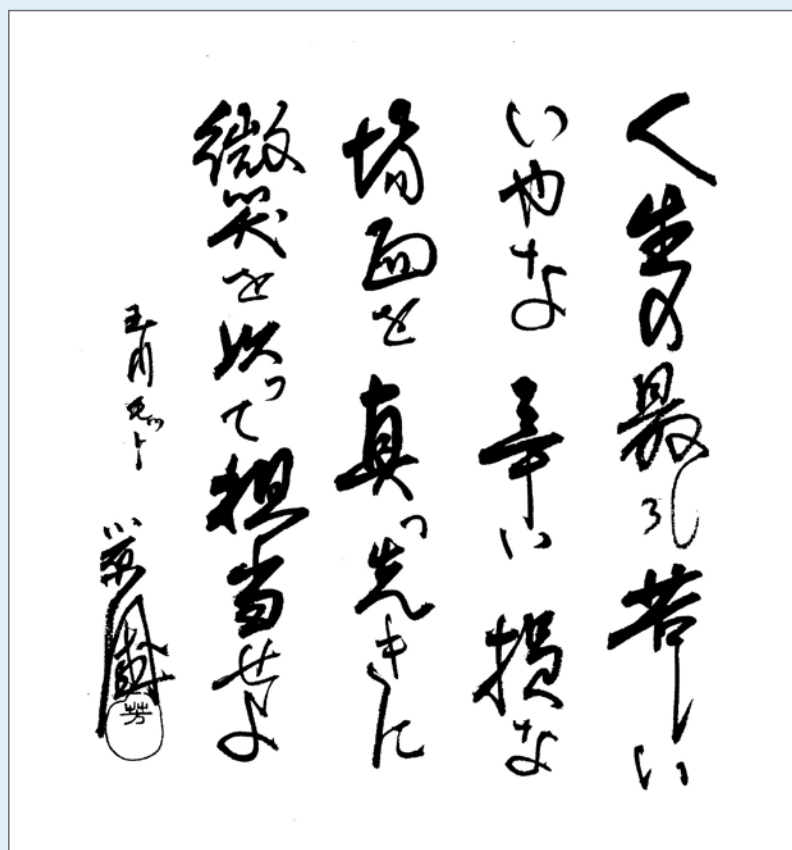 人生の最も苦しい
いやな 辛い 損な
場面を真っ先きに
微笑を以って担当せよ
玉川
芳